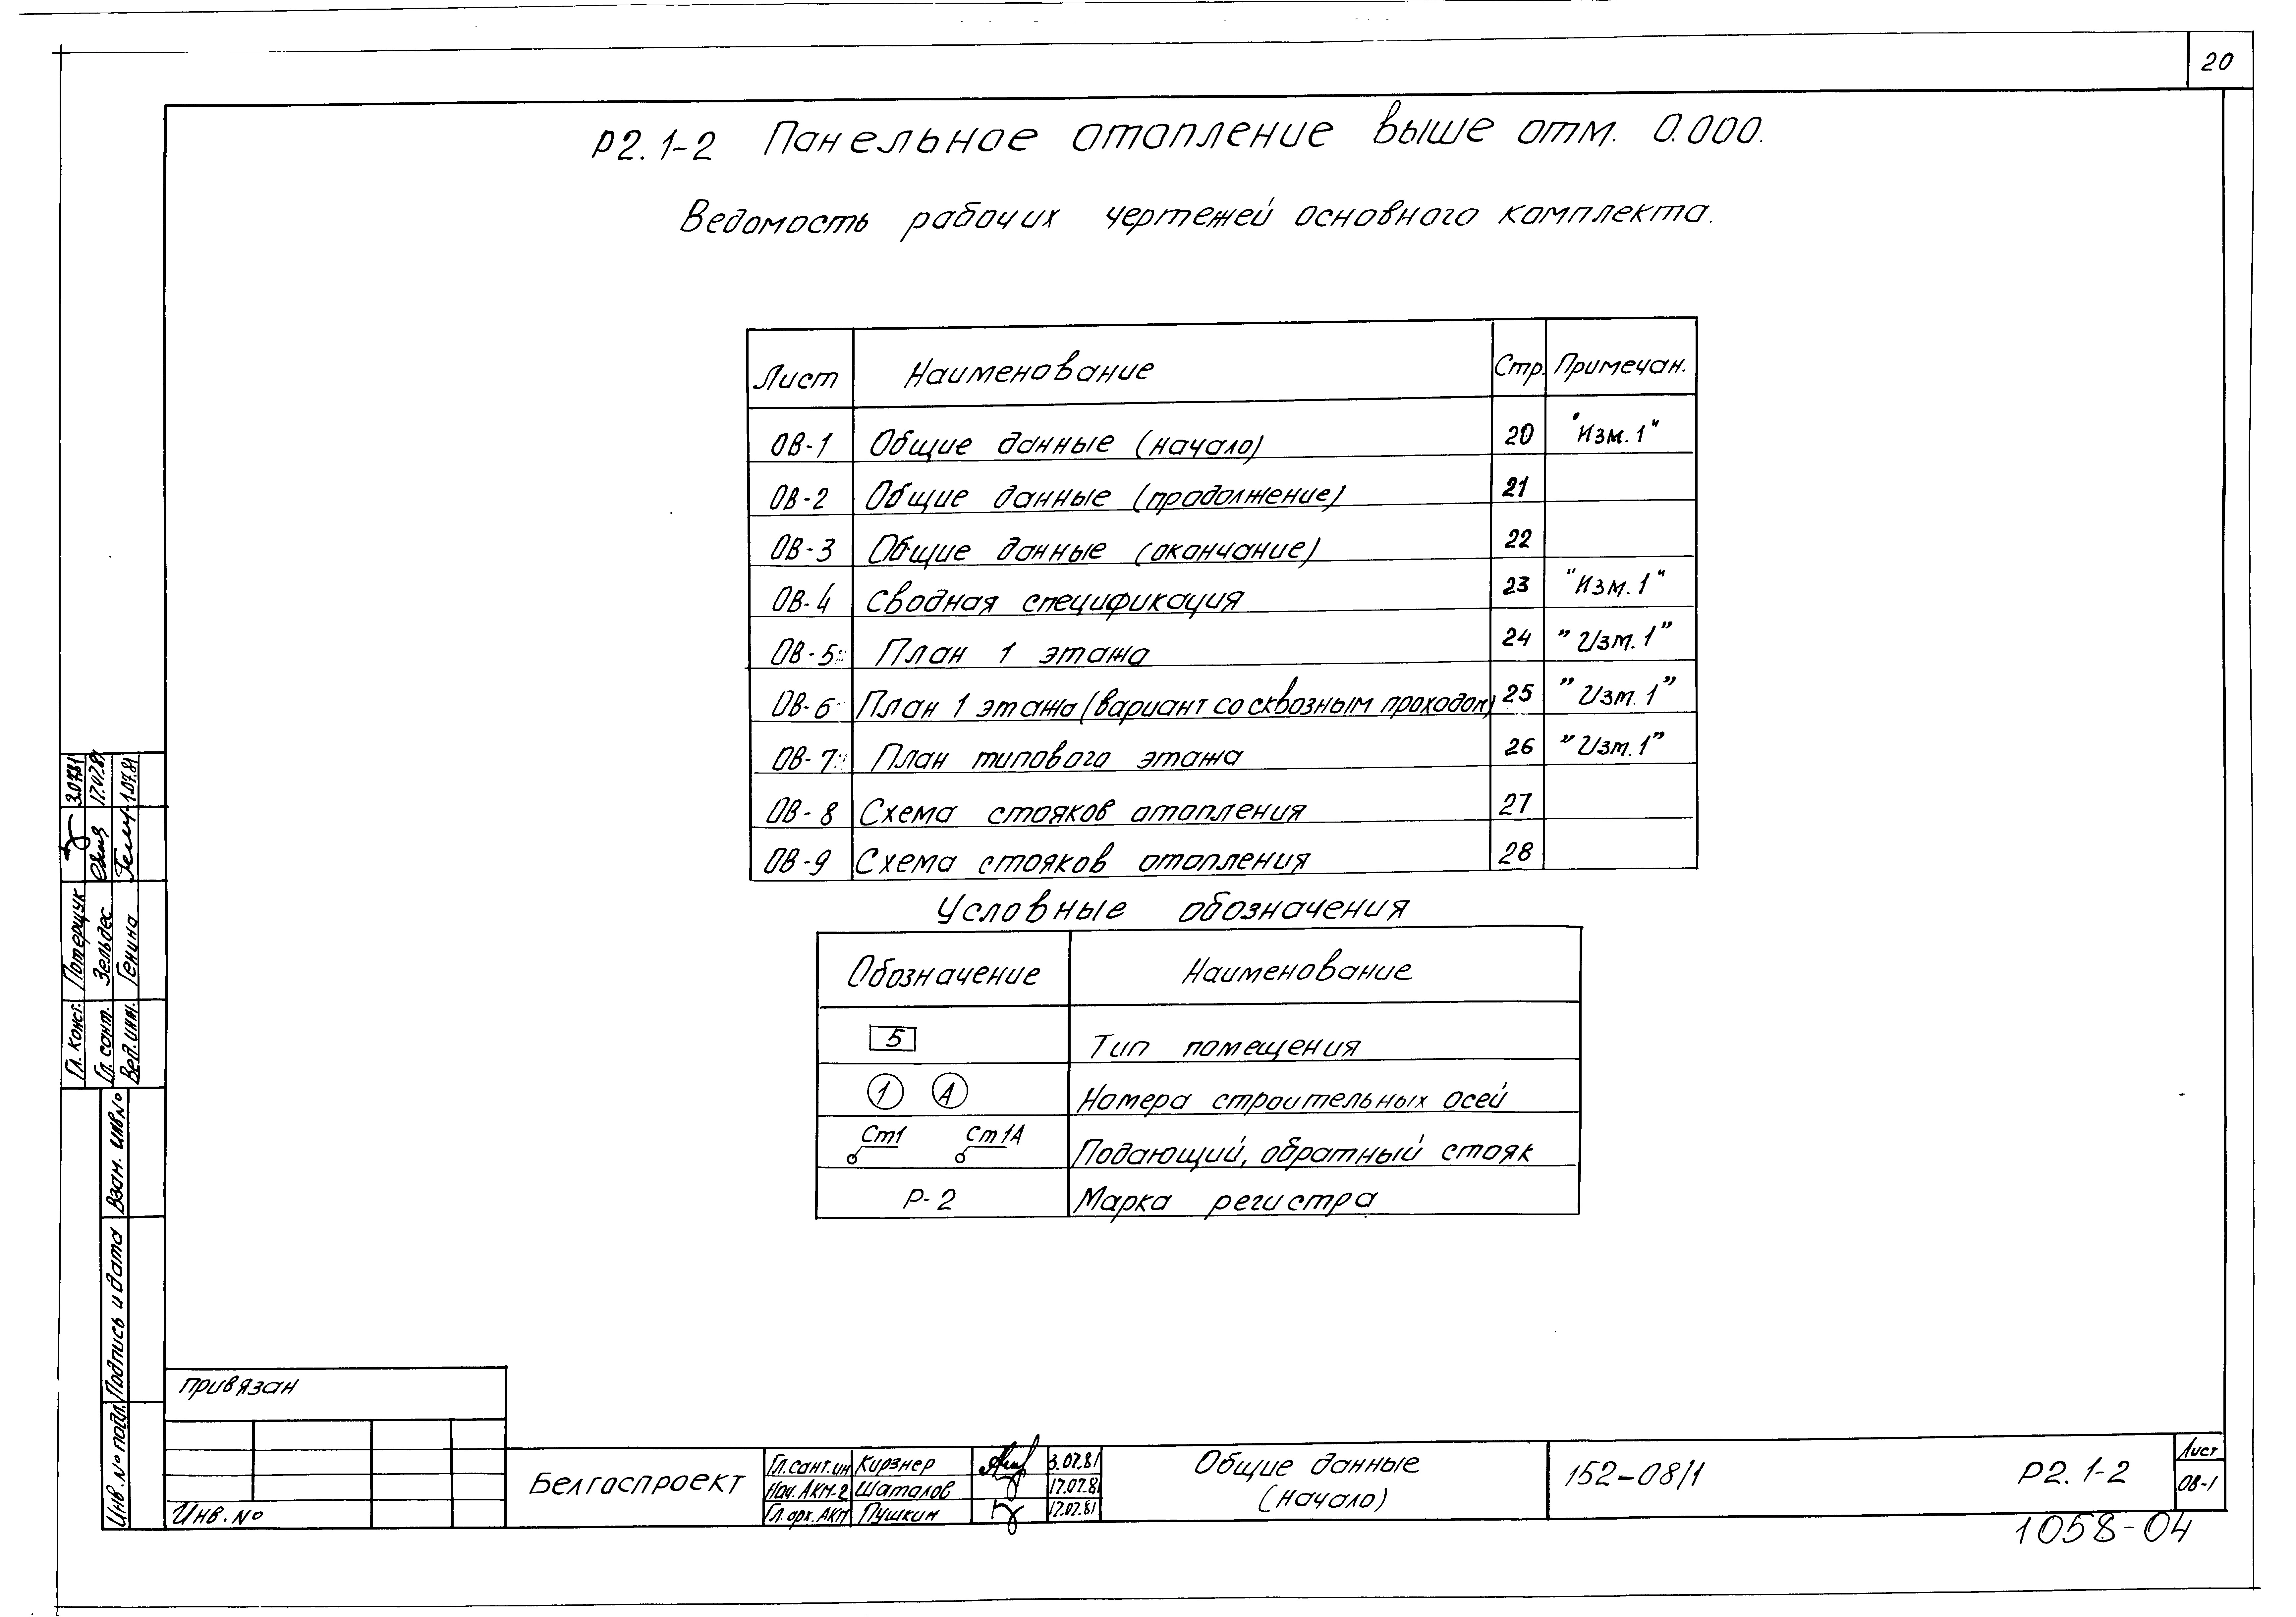 20
Р2.1-2 Панельное отопление выше отм. 0.000.
Ведомость рабочих чертежей основного комплекта.
Лист Наименование Стр. Примечан.
ОВ-1 Общие данные (начало) 20 "Изм.1"
ОВ-2 Общие данные (продолжение) 21
ОВ-3 Общие данные (окончание) 22
ОВ-4 Сводная спецификация 23 "Изм.1"
ОВ-5 План 1 этажа 24 "Изм.1"
ОВ-6 План 1 этажа (вариант со сквозным проходом) 25 "Изм.1"
ОВ-7 План типового этажа 26 "Изм.1"
ОВ-8 Схема стояков отопления 27
ОВ-9 Схема стояков отопления 28
Условные обозначения
Обозначение Наименование
5 Тип помещения
1 А Номера строительных осей
Ст1 Ст1А Подающий, обратный стояк
Р-2 Марка регистра
Гл. конст. Потерщук 3.07.81
Гл. сант. Зельдес 17.07.81
Вед. инж. Генина 1.07.81
Взам. инв №
Подпись и дата
Инв. № подл.
привязан
Инв. №
Белгоспроект
Гл.сант.ин Кирзнер 3.07.81
Нач. АКМ-2 Шаталов 17.07.81
Гл. арх. АКМ Пушкин 17.07.81
Общие данные
(начало)
152-08/1
Р2. 1-2
Лист
ОВ-1
1058-04